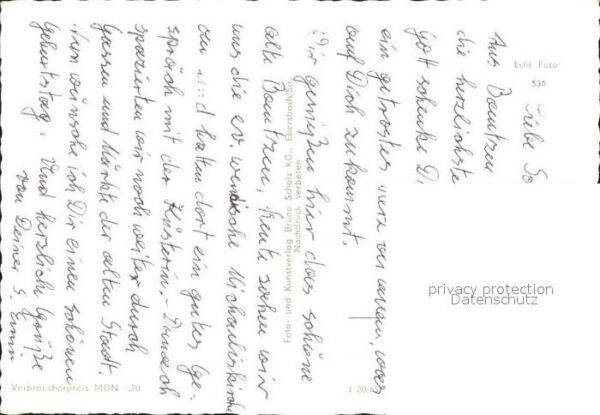 Liebe
Aus Bautzen
die herzlichste
Gott schenke Di
ein getrostes Herz zu allem, was
auf Dich zukommt.
Wir genießen hier das schöne
alte Bautzen, heute sahen wir
uns die ev. wendische Michaeliskirche
an und hatten dort ein gutes Ge-
spräch mit der Küsterin. - Danach
spazierten wir noch weiter durch
Gassen und Märkte der alten Stadt.
Nun wünsche ich Dir einen schönen
Geburtstag. Und herzliche Grüße
von Deiner
Echt Foto
536
Foto- und Kunstverlag Bruno Scholz KG., Ebersbach/Sa.
Nachdruck verboten
privacy protection
Datenschutz
Verbraucherpreis MDN -,20
J 20/6